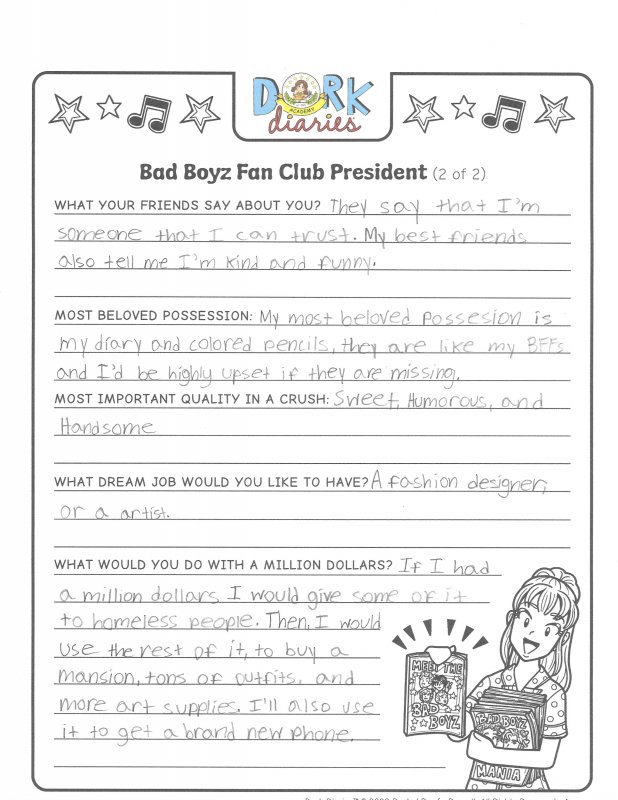 DORK
ACADEMY
diaries
Bad Boyz Fan Club President (2 of 2)
WHAT YOUR FRIENDS SAY ABOUT YOU? They say that I'm
someone that I can trust. My best friends
also tell me I'm kind and funny.
MOST BELOVED POSSESSION: My most beloved possesion is
my diary and colored pencils, they are like my BFFs
and I'd be highly upset if they are missing.
MOST IMPORTANT QUALITY IN A CRUSH: Sweet, Humorous, and
Handsome
WHAT DREAM JOB WOULD YOU LIKE TO HAVE? A fashion designer,
or a artist.
WHAT WOULD YOU DO WITH A MILLION DOLLARS? If I had
a million dollars I would give some of it
to homeless people. Then, I would
use the rest of it, to buy a
mansion, tons of outfits, and
more art supplies. I'll also use
it to get a brand new phone.
MEET THE
BAD
BOYZ
BAD BOYZ
MANIA